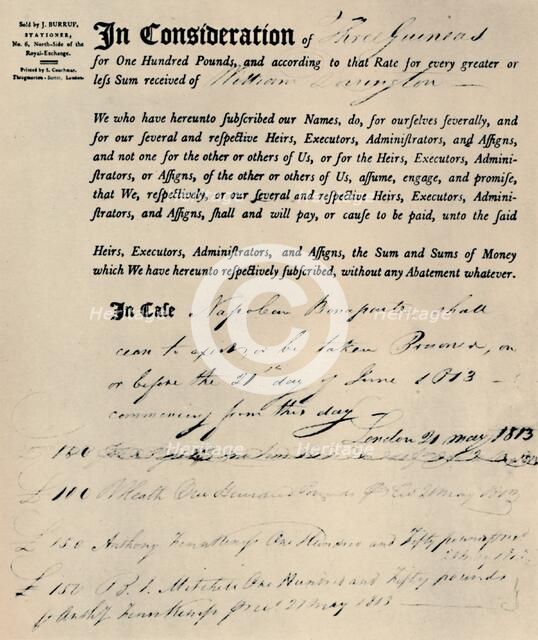 Sold by J. BURRUP,
STATIONER,
No. 6, North-Side of the
Royal-Exchange.
Printed by S. Couchman,
Throgmorton-Street, London.
In Consideration of Three Guineas
for One Hundred Pounds, and according to that Rate for every greater or
leſs Sum received of William Dorrington
We who have hereunto ſubſcribed our Names, do, for ourſelves ſeverally, and
for our ſeveral and reſpective Heirs, Executors, Adminiſtrators, and Aſſigns,
and not one for the other or others of Us, or for the Heirs, Executors, Admini-
ſtrators, or Aſſigns, of the other or others of Us, aſſume, engage, and promiſe,
that We, reſpectively, or our ſeveral and reſpective Heirs, Executors, Admini-
ſtrators, and Aſſigns, ſhall and will pay, or cauſe to be paid, unto the ſaid
Heirs, Executors, Adminiſtrators, and Aſſigns, the Sum and Sums of Money
which We have hereunto reſpectively ſubſcribed, without any Abatement whatever.
In Caſe Napoleon Bonaparte shall
cease to exist, or be taken Prisoner, on
or before the 21st day of June 1813
commencing from this day
London 21 May 1813
£100 Heath One Hundred 21 May
£150 Anthony One Hundred and Fifty pounds
£150 Mitchell One Hundred and Fifty pounds
21 May 1813
Heritage
Heritage
Heritage
Heritage
Heritage
Heritage